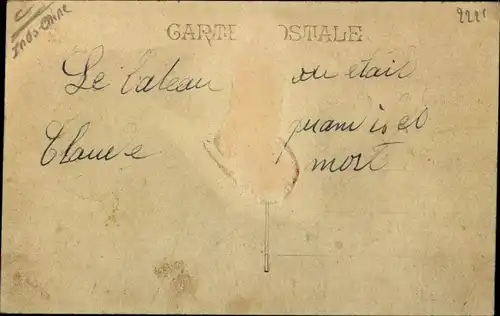 Indo Chine
2221
CARTE POSTALE
Le bateau ou était
Claude quam is el
mort